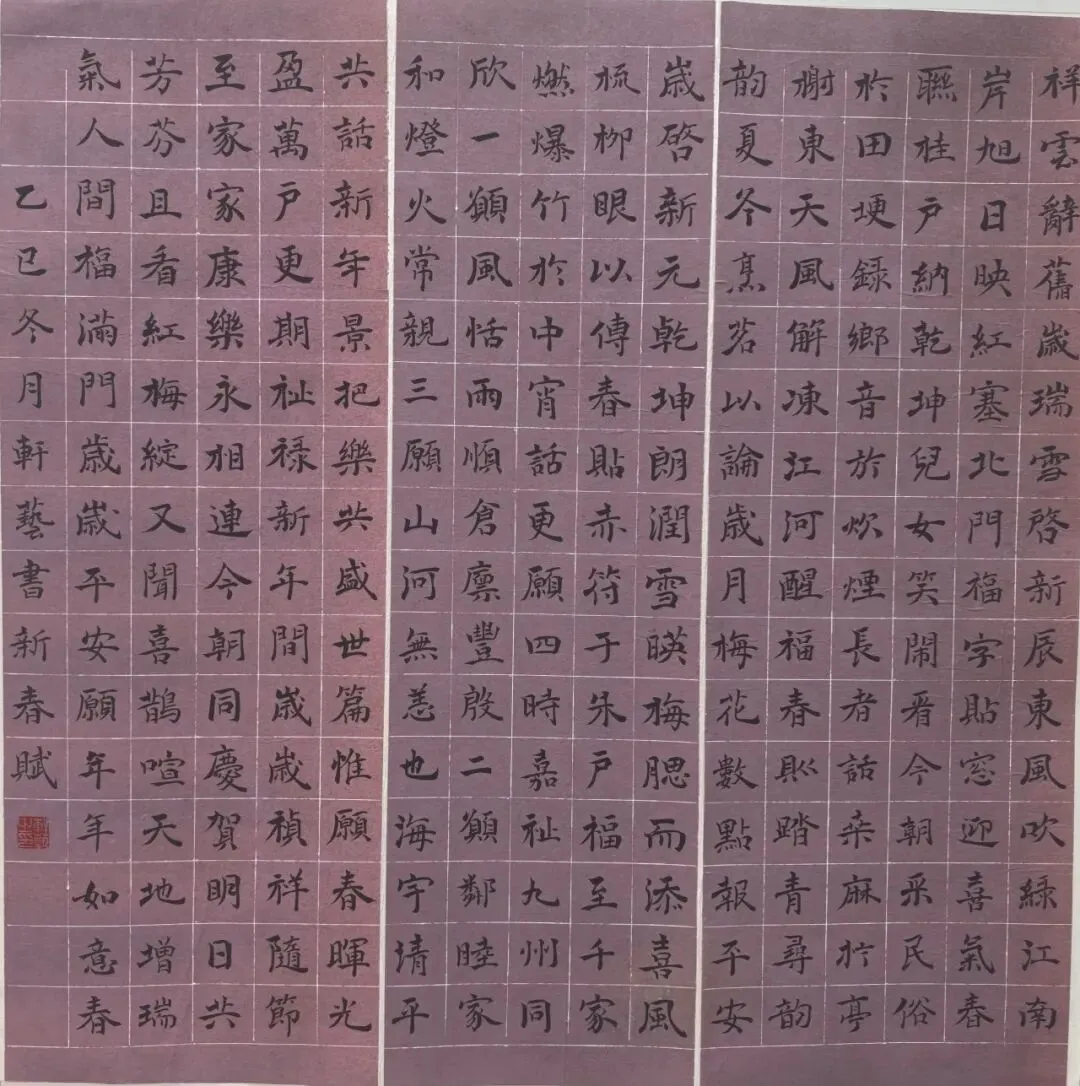 祥雲辭舊歲瑞雪啓新辰東風吹綠江南
岸旭日映紅塞北門福字貼窓迎喜氣春
聮桂戶納乾坤兒女笑閙看今朝采民俗
於田埂録鄉音於炊煙長者話桒麻於亭
榭東天風解凍江河醒福春則踏青尋韵
韵夏冬烹茗以論歲月梅花數點報平安
歲啓新元乾坤朗潤雪暎梅腮而添喜風
梳柳眼以傳春貼赤符于朱戶福至千家
燃爆竹於中宵話更願四時嘉祉九州同
欣一願風恬雨順倉廩豐殷二願鄰睦家
和燈火常親三願山河無恙也海宇靖平
共話新年景把樂共盛世篇惟願春暉光
盈萬戶更期祉祿新年間歲歲禎祥隨節
至家家康樂永相連今朝同慶賀明日共
芳芬且看紅梅綻又聞喜鵲喧天地增瑞
氣人間福滿門歲歲平安願年年如意春
乙巳冬月軒藝書新春賦